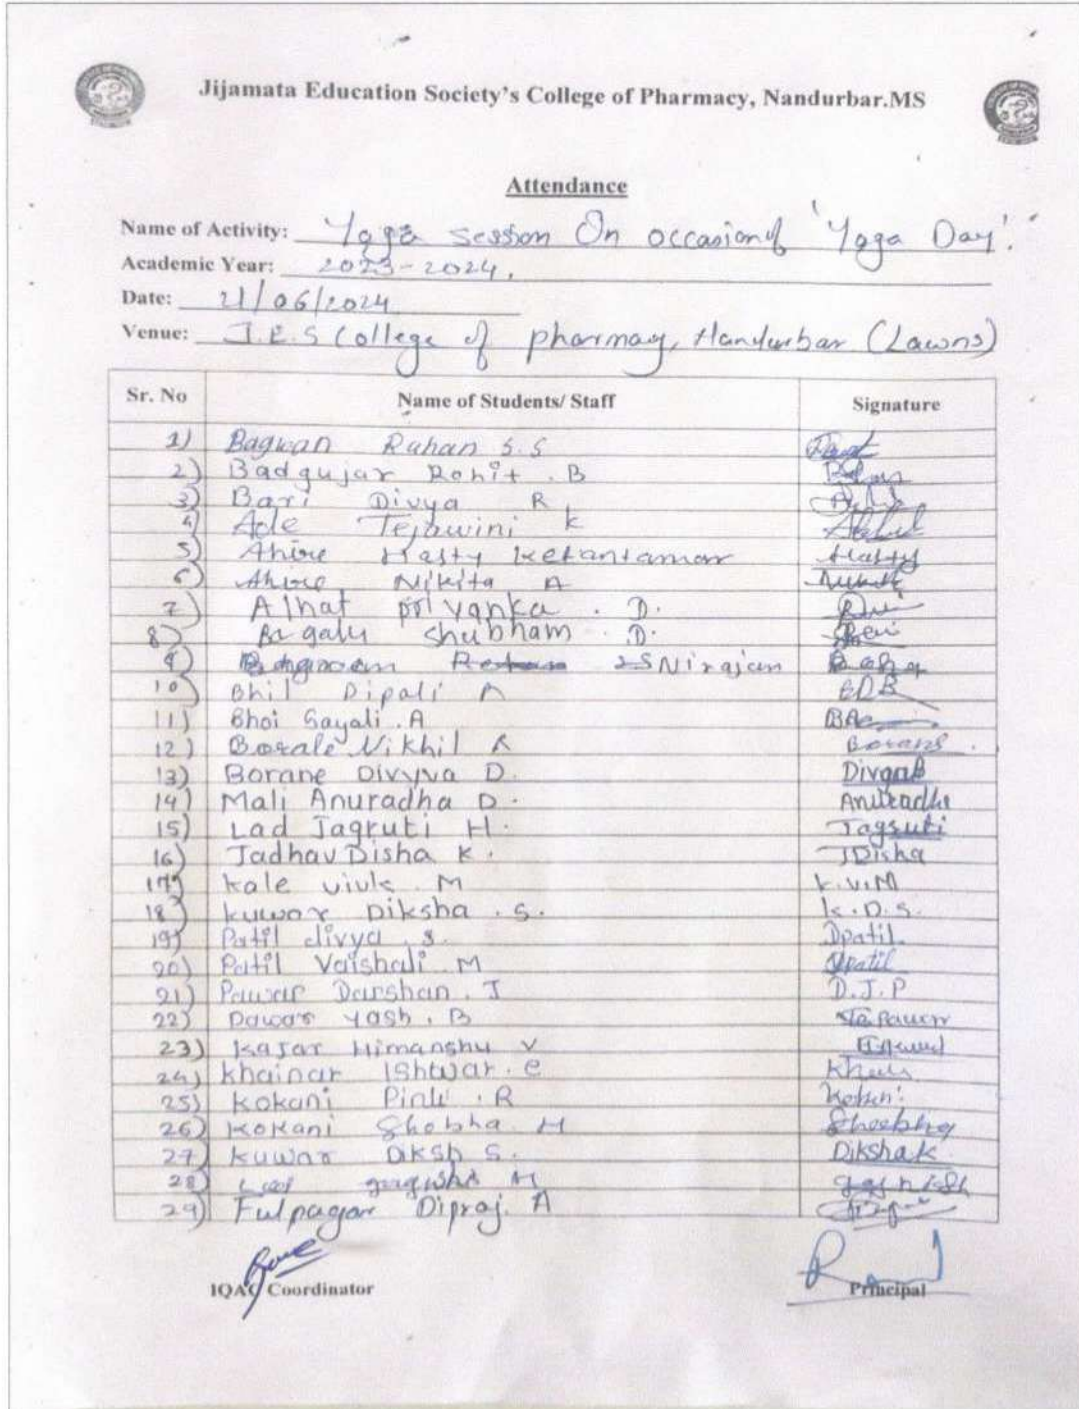 Jijamata Education Society's College of Pharmacy, Nandurbar.MS
Attendance
Name of Activity: Yoga session On occasion of 'Yoga Day'.
Academic Year: 2023-2024.
Date: 21/06/2024
Venue: J.E.S College of pharmacy, Nandurbar (Lawns)
Sr. No Name of Students/ Staff Signature
1) Bagwan Rahan S.S
2) Badgujar Rohit . B
3) Bari Divya R
4) Ade Tejawini k
5) Ahire Hasty ketantamar Hasty
6) Ahire Nikita A
7) Alhat priyanka . D.
8) shubham . D.
9) Nirajan
10) Bhil Dipali A
11) Bhoi Sayali . A
12) Borale Nikhil R
13) Borane Divyva D.
14) Mali Anuradha D. Anuradha
15) Lad Jagruti H. Jagruti
16) Jadhav Disha K. JDisha
17) kale M k.v.M
18) kuwar Diksha . S. k.D.S.
19) Patil divya s. Dpatil
20) Patil Vaishali M Vpatil
21) Pawar Darshan . J D.J.P
22) Pawar Yash . B
23) Kajar Himanshu V
24) khainar Ishwar . e
25) Kokani . R
26) Kokani Shobha H
27) kuwar Diksh S. Dikshak
28)
29) Fulpagar Dipraj. A
IQAC Coordinator Principal